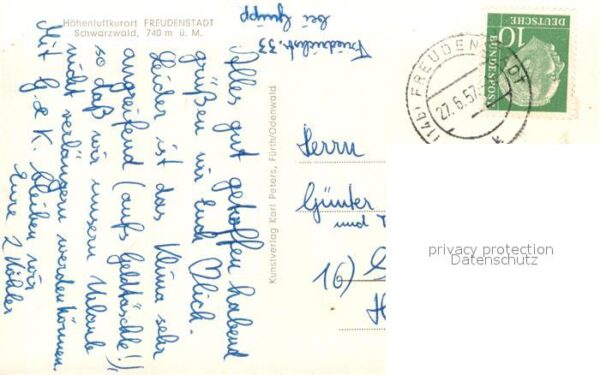 Höhenluftkurort FREUDENSTADT
Schwarzwald, 740 m ü. M.
Friedrichstr. 33
bei Gaipp
Alles gut getroffen habend
grüßen wir Euch herzlich.
Leider ist das Klima sehr
angreifend (aufs Geldtäschle!),
so daß wir unsern Urlaub
nicht verlängern werden können.
Mit G. u. K. bleiben wir
Eure 2 Köhler
Kunstverlag Karl Peters, Fürth/Odenwald
10
DEUTSCHE
BUNDESPOST
(14b) FREUDENSTADT
27.6.57
Herrn
Günter
und
16)
privacy protection
Datenschutz